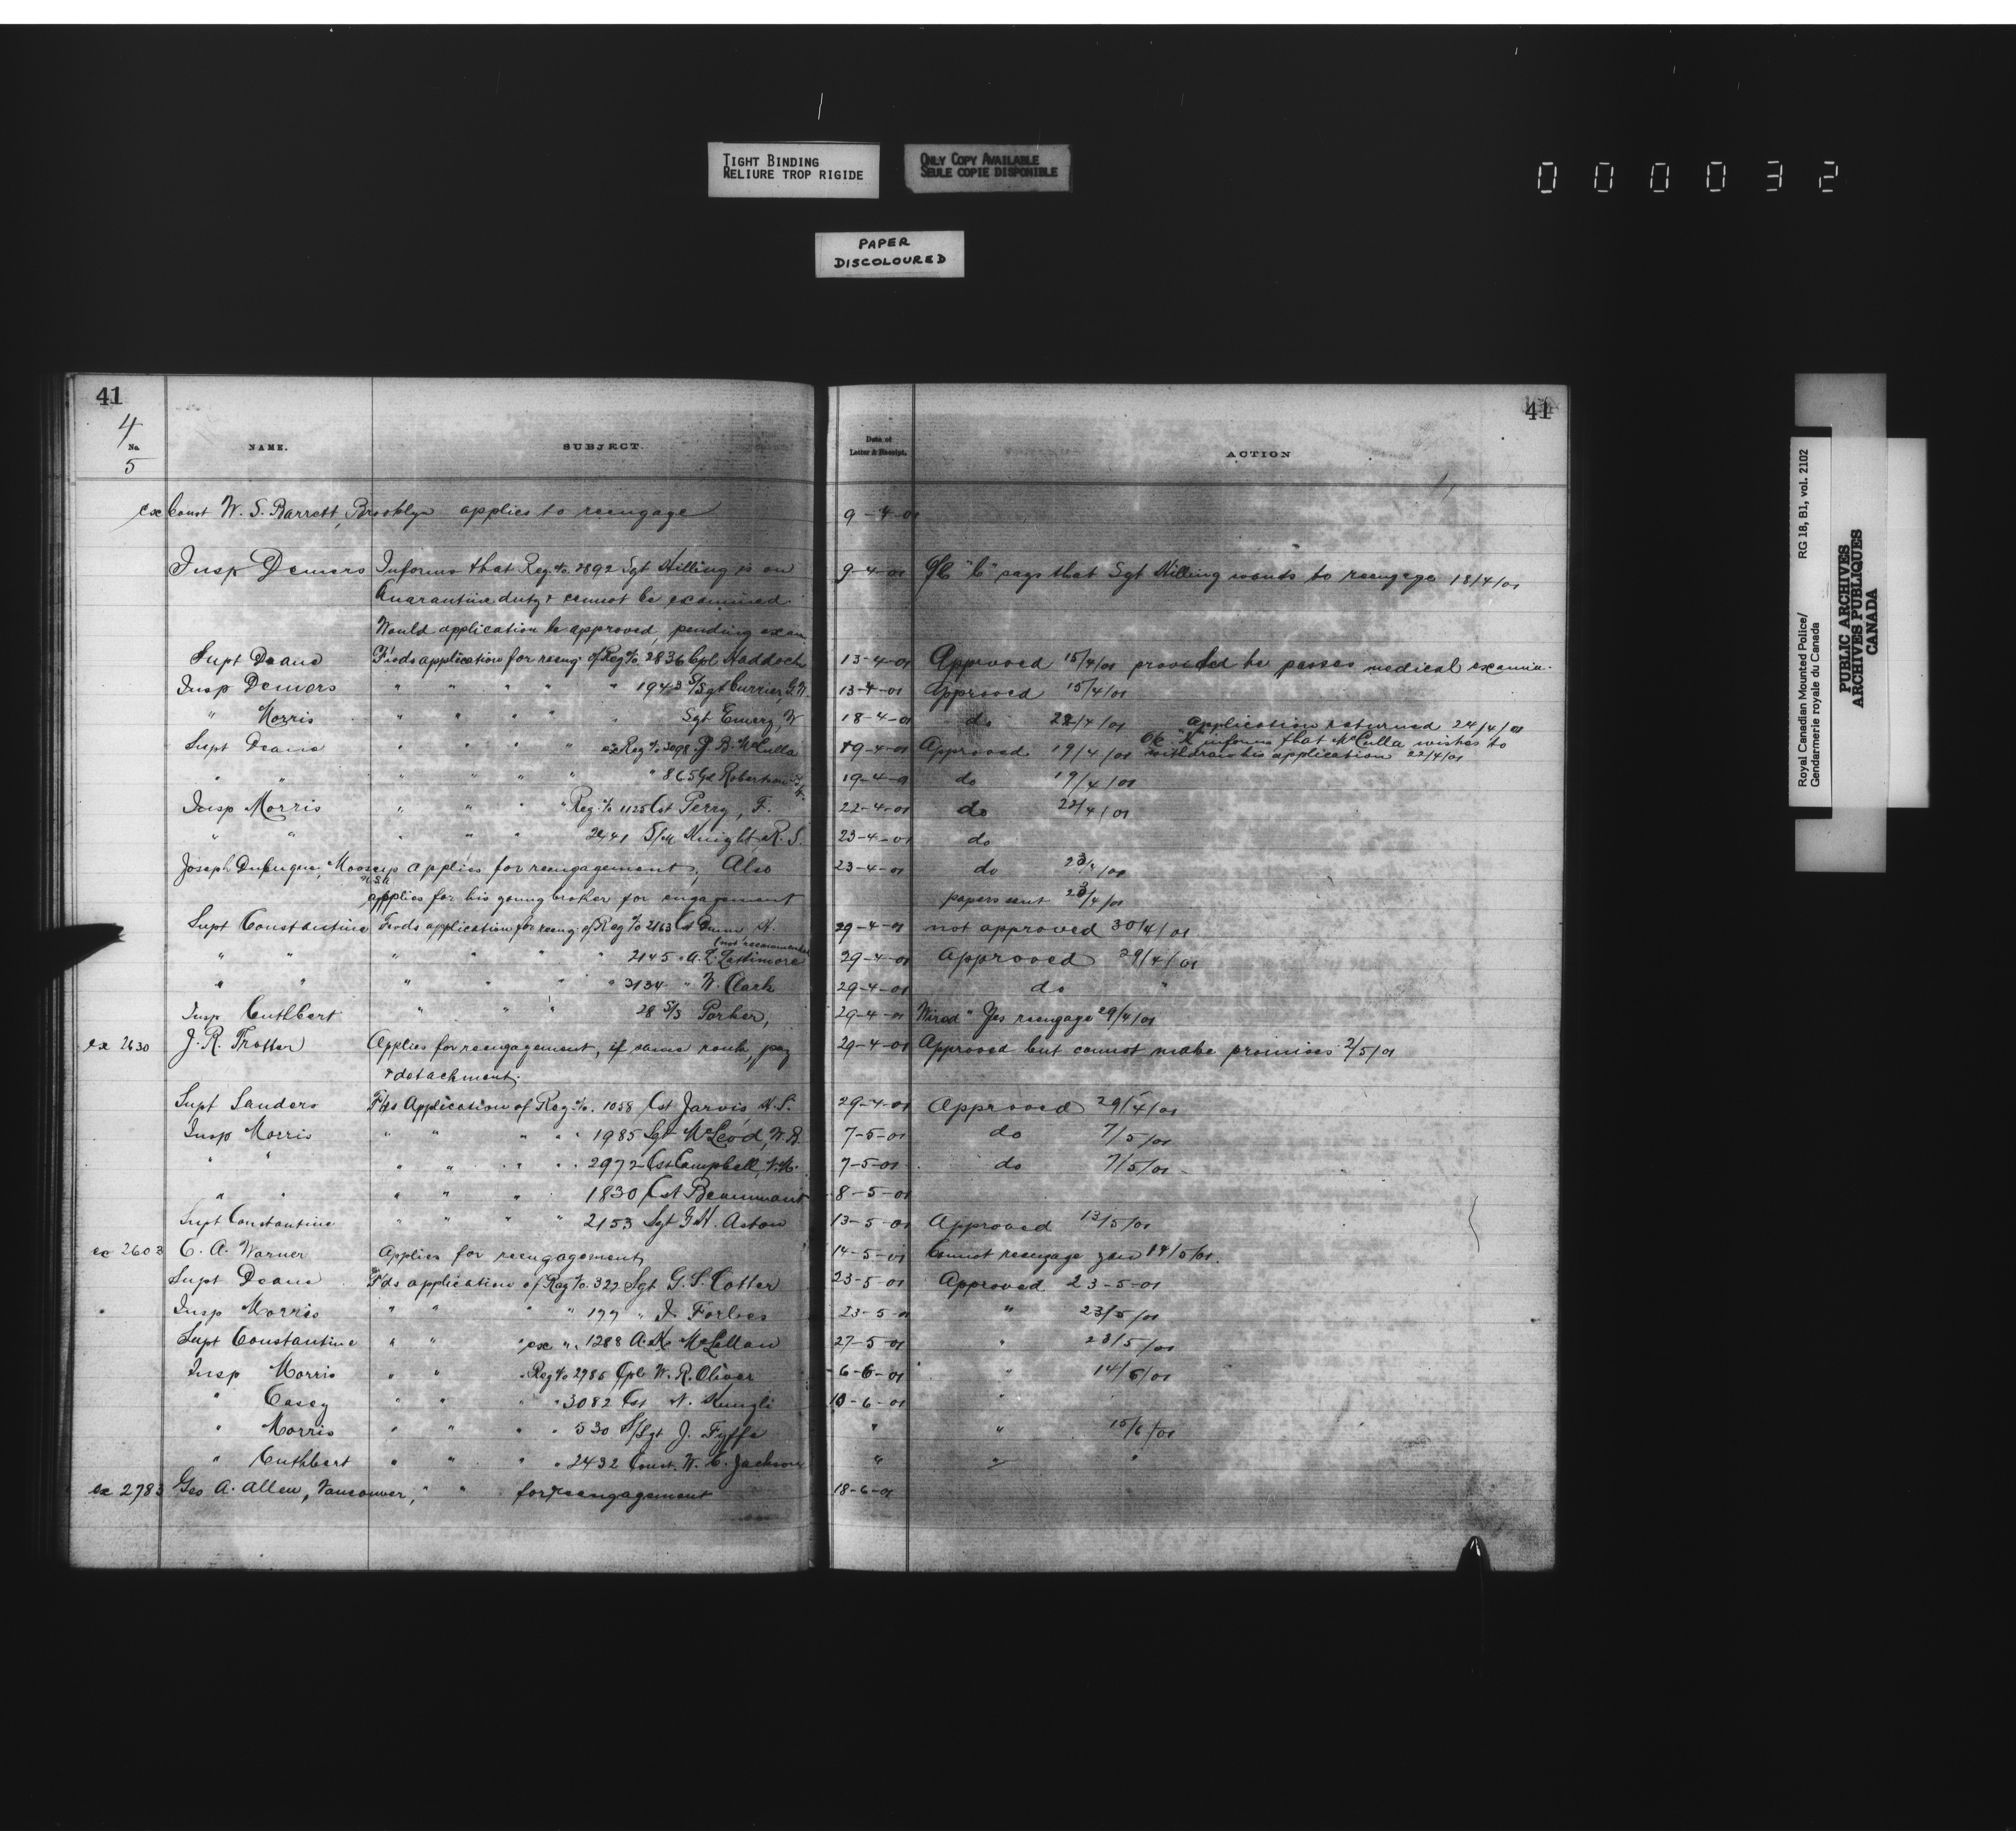 TIGHT BINDING
RELIURE TROP RIGIDE
ONLY COPY AVAILABLE
SEULE COPIE DISPONIBLE
000032
PAPER
DISCOLOURED
41
41
4
No.
5
NAME. SUBJECT. Date of Letter & Receipt. ACTION
ex Const W. S. Barrett, Brooklyn applies to reengage 9-4-01
Insp Demers Informs that Reg. No. 2892 Sgt Hilling is on 9-4-01 "C" says that Sgt Hilling wants to reengage 18/4/01
Quarantine duty & cannot be examined.
Would application be approved, pending exam
Supt Deane Fwds application for reeng. of Reg No 2836 Cpl Haddock 13-4-01 Approved 15/4/01 provided he passes medical examin.
Insp Demers " " " " " 1943 S/Sgt Currier, G.W. 13-4-01 Approved 15/4/01
" Morris " " " " " Sgt Emery, W 18-4-01 do 22/4/01 application returned 24/4/01
Supt Deane " " " " ex Reg No 3098 J. B. McCulla 19-4-01 Approved 19/4/01 informs that McCulla wishes to
withdraw his application 22/4/01
" " " " " " " 865 Robertson 19-4-01 do 19/4/01
Insp Morris " " " " Reg. No 1125 Cst Perry, F. 22-4-01 do 22/4/01
" " " " " 2441 S/M Knight, R. S. 23-4-01 do
Joseph Dubuque, Moosup applies for reengagement, Also 23-4-01 do 23/4/01
applies for his young broher for engagement papers sent 23/4/01
Supt Constantine Fwds application for reeng. of Reg No 2163 Cst Dunn H. 29-4-01 not approved 30/4/01
(not recommended
" " " " " " 2145 " A. L. Lattimore 29-4-01 Approved 29/4/01
" " " " " " 3134 " W. Clark 29-4-01 do "
Insp Cuthbert " " " 28 S/S Parker, 29-4-01 Wired "Yes reengage 29/4/01
ex 2630 J. R. Trotter Applies for reengagement, if same rank, pay 29-4-01 Approved but cannot make promises 2/5/01
& detachment.
Supt Sanders Fds Application of Reg No. 1058 Cst Jarvis H. S. 29-4-01 Approved 29/4/01
Insp Morris " " " " 1985 Sgt McLeod, W. R. 7-5-01 do 7/5/01
" " " " " " 2972 Cst Campbell, 7-5-01 do 7/5/01
" " " " " 1830 Cst Beaumont 8-5-01
Supt Constantine " " " " 2153 Sgt G. H. Aston 13-5-01 Approved 13/5/01
ex 2603 C. A. Warner Applies for reengagement, 14-5-01 Cannot reengage you 14/5/01.
Supt Deane Fds application of Reg No. 327 Sgt G. S. Cotter 23-5-01 Approved 23-5-01
Insp Morris " " " " 177 " J. Forbes 23-5-01 " 23/5/01
Supt Constantine " " " ex " 1288 A. McLellan 27-5-01 " 28/5/01
Insp Morris " " " Reg No 2985 Cpl W. R. Oliver 6-6-01 " 14/6/01
" Casey " " " " 3082 Cst 10-6-01 "
" Morris " " " " 530 S/Sgt J. Fyffe " " 15/6/01
" Cuthbert " " " " 2432 Const. W. C. Jackson " " "
ex 2783 Geo A. Allen, Vancouver, " " for reengagement 18-6-01
Royal Canadian Mounted Police/ RG 18, B1, vol. 2102
Gendarmerie royale du Canada
PUBLIC ARCHIVES
ARCHIVES PUBLIQUES
CANADA